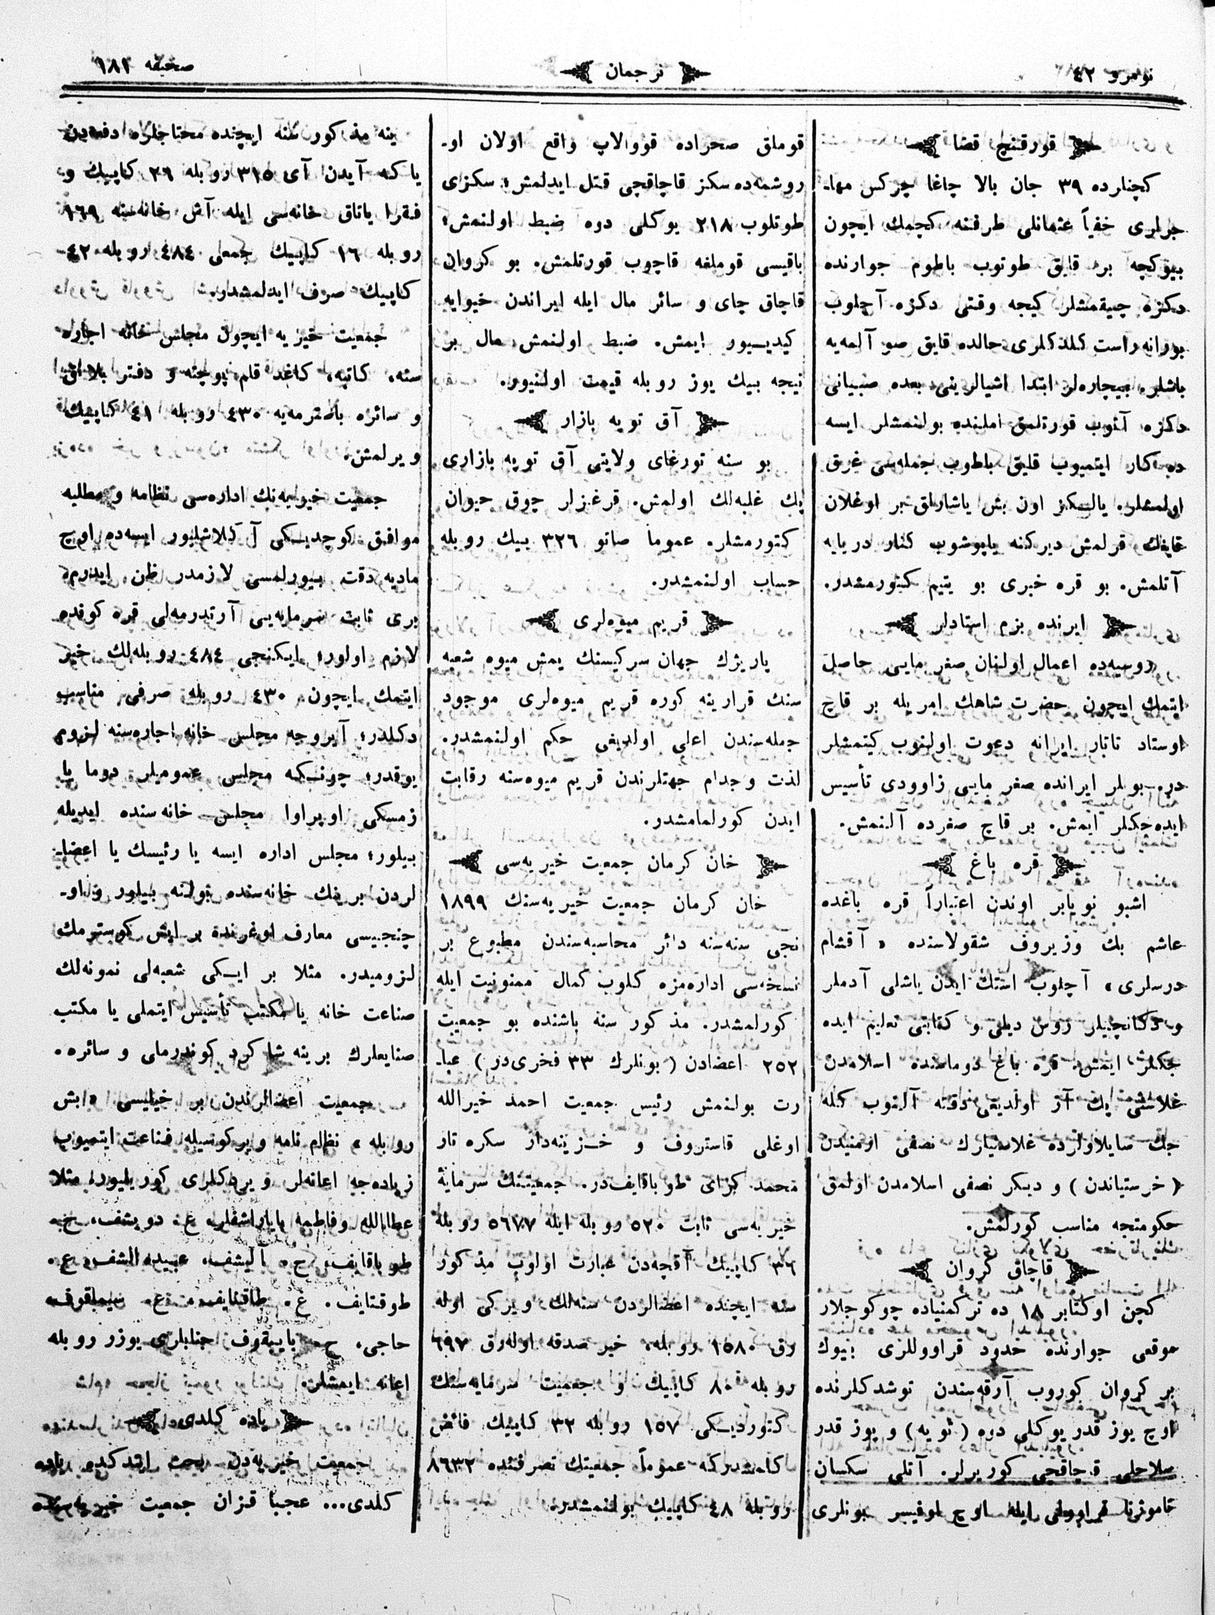 نومرو ٤٢
ترجمان
صحیفه ١٨١
قورقنچ قضا
كچنلرده ٣٩ جان بالا چاغا چركس مها-
جرلری خفیاً عثمانلی طرفنه كچمك ایچون
بیوكچه بر قایق طوتوب باطوم جوارنده
دكزه چیقمشلر كیجه وقتی دكزه آچلوب
بورانه راست كلدكلری حالده قایق صو آلمه‌یه
باشلر. بیچاره‌لر ابتدا اشیالرینی بعده صبیانی
دكزه آتوب قورتلمق املنده بولنمشلر ایسه
ده كار ایتمیوب قایق باطوب جمله‌سی غرق
اولمشلر. یالكز اون بش یاشارلق بر اوغلان
قایقك قرلمش دیركنه یاپوشوب كنار دریایه
آتلمش. بو قره خبری بو یتیم كتورمشدر.
ایرنده بزم استادلر
روسیه‌ده اعمال اولنان صغر مایی حاصل
ایتمك ایچون حضرت شاهك امریله بر قاچ
اوستاد تاتار ایرانه دعوت اولنوب كیتمشلر
در. بونلر ایرانده صغر مایی زاوودی تأسیس
ایده‌جكلر ایمش. بر قاچ صغرده آلنمش.
قره باغ
اشبو نویابر اوندن اعتباراً قره باغده
هاشم بك وزیروف شقولاسنده «آقشام
درسلری» آچلوب استك ایدن یاشلی آدملر
و دكانچیلر روس دیلی و كتابتی تعلیم ایده
جكلر ایمش. قره باغ دوماسنده اسلامدن
غلاسنی پك آز اولدیغی دقته آلنوب كله
جك سایلاولرده غلاسنیلرك نصفی ارمنیدن
(خرستیاندن) و دیكر نصفی اسلامدن اولمق
حكومتجه مناسب كورلمش.
قاچاق كروان
كچن اوكتابر ١٨ ده تركمنیاده چوكوجلار
موقعی جوارنده حدود قراووللری بیوك
بر كروان كوروب آرقه‌سندن توشدكلرنده
اوچ یوز قدر یوكلی دوه (تویه) و یوز قدر
سلاحلی قاچاقچی كوریرلر. آتلی سكسان
قاموژنا قراوولی ایله اوچ اوفیسر بونلری
قوملق صحراده قووالاپ واقع اولان او-
روشمه‌ده سكز قاچاقچی قتل ایدلمش؛ سكزی
طوتلوب ٢١٨ یوكلی دوه ضبط اولنمش؛
باقیسی قوملغه قاچوب قورتلمش. بو كروان
قاچاق چای و سائر مال ایله ایراندن خیوایه
كیدیــیور ایمش. ضبط اولنمش مال بر
نیجه بیك یوز روبله قیمت اولنیور.
آق تویه بازار
بو سنه تورغای ولایتی آق تویه بازاری
پك غلبه‌لك اولمش. قرغزلر چوق حیوان
كتورمشلر. عموما صاتو ٣٢٦ بیك روبله
حساب اولنمشدر.
قریم میوه‌لری
پاریژك جهان سركیسنك یمش میوه شعبه
سنك قرارینه كوره قریم میوه‌لری موجود
جمله‌سندن اعلی اولدیغی حكم اولنمشدر.
لذت وجدام جهتلرندن قریم میوه‌سنه رقابت
ایدن كورلمامشدر.
خان كرمان جمعیت خیریه‌سی
خان كرمان جمعیت خیریه‌سنك ١٨٩٩
نجی سنه‌سنه دائر محاسبه‌سندن مطبوع بر
نسخه‌سی اداره‌مزه كلوب كمال ممنونیت ایله
كورلمشدر. مذكور سنه باشنده بو جمعیت
٢٥٢ اعضادن (بونلرك ٣٣ فخری‌در) عبا-
رت بولنمش رئیس جمعیت احمد خیرالله
اوغلی قاستروف و خــزینه‌دار سكره‌تار
محمد كرای طوباقایف‌در. جمعیتنك سرمایهٔ
خیریه‌سی ثابت ٥٢٠ روبله ایله ٥٦٧٧ روبله
٣٦ كاپیك آقچه‌دن عبارت اولوب مذكور
سنه ایچنده اعضالردن سنه‌لك ویركی اوله
رق ١٥٨٠ روبله، خیر صدقه اوله‌رق ٦٩٧
روبله ٨٠ كاپیك و جمعیت سرمایه‌سنك
كتوردیــكی ١٥٧ روبله ٣٢ كاپیك فائض
كلمشدركه عموماً جمعیتك تصرفنده ٨٦٣٢
روبله ٤٨ كاپیك بولنمشدر.
ینه مذكور سنه ایچنده محتاجلره دفعه‌دن
یاكه آیدن آی ٣١٥ روبله ٢٦ كاپیك و
فقرا یاتاق خانه‌سی ایله آش خانه‌سنه ١٦٩
روبله ١٦ كاپیك جمعی ٤٨٤ روبله ٤٢
كاپیك صرف ایدلمشدر.
جمعیت خیریه ایچون مجلس خانه اجاره
سنه، كاتبه، كاغد قلم، پوچته و دفتر بلانق
و سائره باصترمه‌یه ٤٣٠ روبله ٤١ كاپیك
ویرلمش.
جمعیت خیریه‌نك اداره‌سی نظامه و مطلبه
موافق كوچدیــكی آكلاشلیور ایسه‌ده اوچ
مادیه دقت بیورلمسی لازمدر ظن ایدرم.
بری ثابت سرمایه‌یی آرتدرمه‌لی قره كونده
لازم اولور؛ ایكنجی ٤٨٤ روبله‌لك خیر
ایتمك ایچون ٤٣٠ روبله صرفی مناسب
دكلدر؛ آیروجه مجلس خانه اجاره‌سنه لزوم
یوقدر؛ چونــكه مجلس عمومیلر دوما یا
زمسكی اوپراوا مجلس خانه‌سنده ایدیله
بیلور؛ مجلس اداره ایسه یا رئیسك یا اعضا-
لردن برینك خانه‌سنده بولنه بیلور و او-
چنجیسی معارف اوغرنده بر ایش كوسترمك
لزومیدر. مثلا بر ایــكی شعبه‌لی نمونه‌لك
صناعت خانه یا مكتب تأسیس ایتملی یا مكتب
صنایعلرك برینه شاكرد كوندرملی و سائره.
جمعیت اعضالرندن بر خیلیسی «بش
روبله» نظام نامه ویركوسیله قناعت ایتمیوب
زیاده‌جه اعانه‌لر ویردكلری كوریلیور، مثلا
عطاالله وفاطمه بایراشفلر، غ. دویشف، ح.
طوباقایف، ج. الیشف، عبیدالشف، ع.
طوقتایف، غ.
حاجی، ح. بایبقوف جنابلری یوزر روبله
اعانه ایمشلر.
یاده كلدی
جمعیت خیریه‌دن بحث ایتدكده یاده
كلدی... عجبا قزان جمعیت خیریه‌سنده